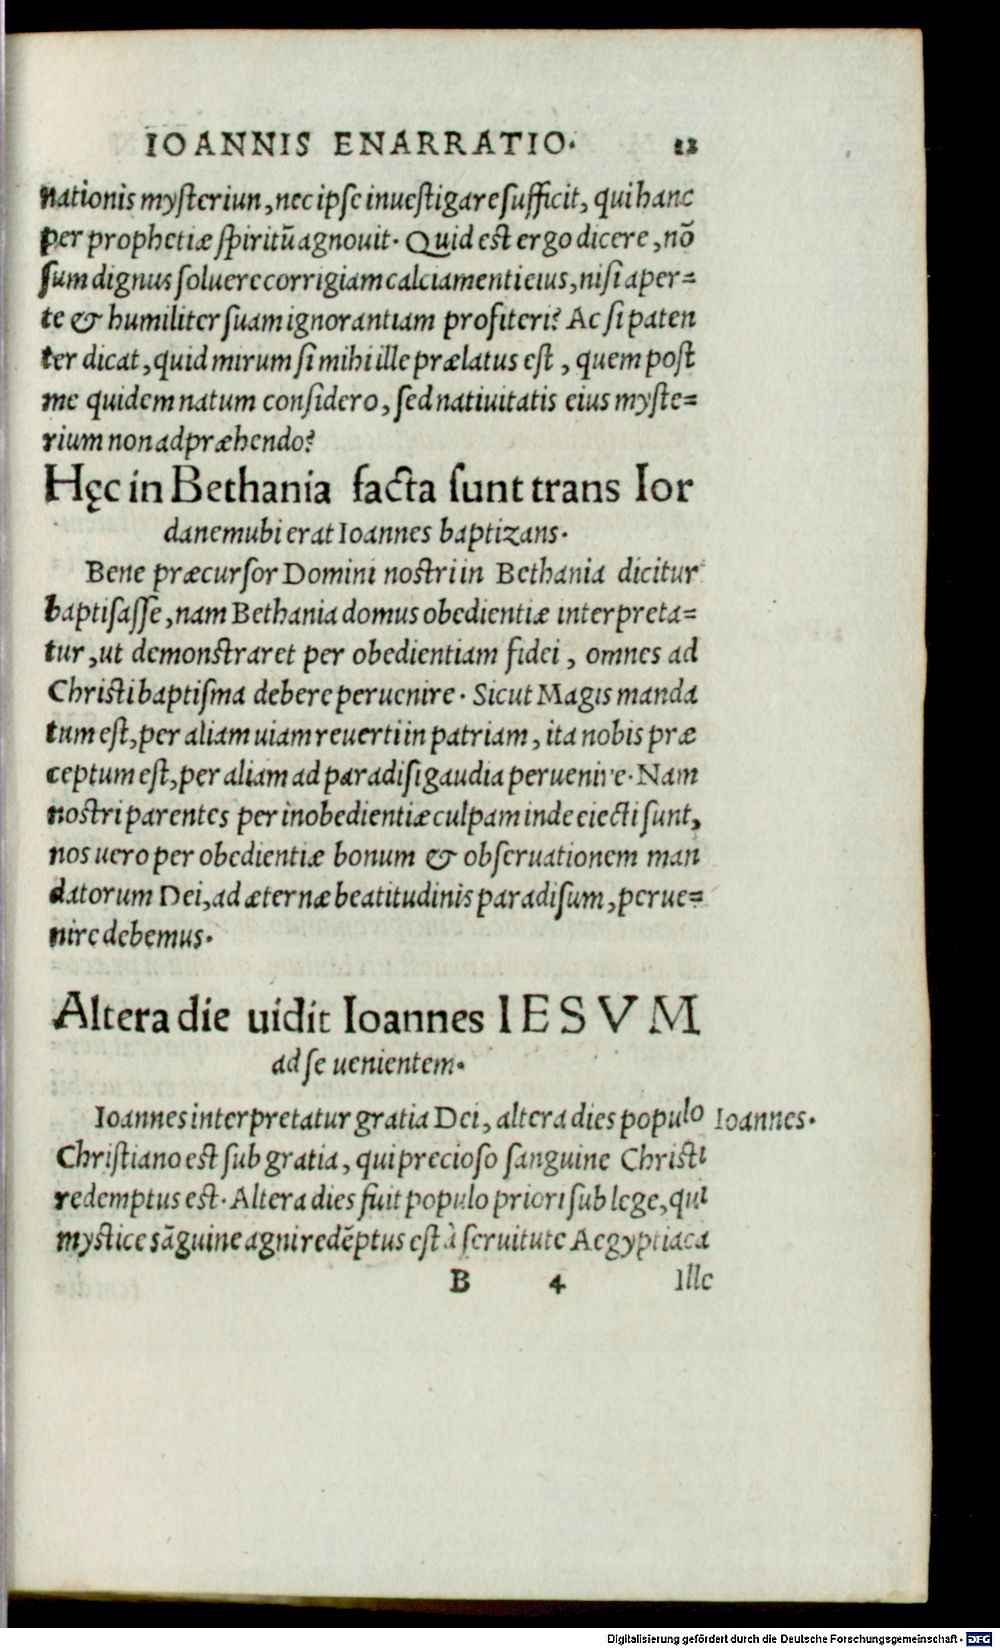 IOANNIS ENARRATIO. 12
nationis mysteriun, nec ipse inuestigare sufficit, qui hanc
per prophetiæ spiritū agnouit. Quid est ergo dicere, nō
sum dignus soluere corrigiam calciamenti eius, nisi aper=
te & humiliter suam ignorantiam profiteri? Ac si paten
ter dicat, quid mirum si mihi ille prælatus est, quem post
me quidem natum considero, sed natiuitatis eius myste=
rium non adpræhendo?
Hęc in Bethania facta sunt trans Ior
danem ubi erat Ioannes baptizans.
Bene præcursor Domini nostri in Bethania dicitur
baptisasse, nam Bethania domus obedientiæ interpreta=
tur, ut demonstraret per obedientiam fidei, omnes ad
Christi baptisma debere peruenire. Sicut Magis manda
tum est, per aliam uiam reuerti in patriam, ita nobis præ
ceptum est, per aliam ad paradisi gaudia peruenire. Nam
nostri parentes per inobedientiæ culpam inde eiecti sunt,
nos uero per obedientiæ bonum & obseruationem man
datorum Dei, ad æternæ beatitudinis paradisum, perue=
nire debemus.
Altera die uidit Ioannes IESVM
ad se uenientem.
Ioannes interpretatur gratia Dei, altera dies populo Ioannes.
Christiano est sub gratia, qui precioso sanguine Christi
redemptus est. Altera dies fuit populo priori sub lege, qui
mystice sāguine agni redēptus est à seruitute Aegyptiaca
B 4 Ille
Digitalisierung gefördert durch die Deutsche Forschungsgemeinschaft - DFG